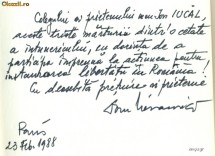 Calificativ.ro
Colegului și prietenului meu Ion IUCAL,
aceste triste mărturii dintr'o cetate
a întunericului, cu dorința de a
participa împreună la acțiunea pentru
instaurarea libertății în România!
Cu deosebită prețuire și prietenie
Paris
23 Feb. 1988
okazii.ro